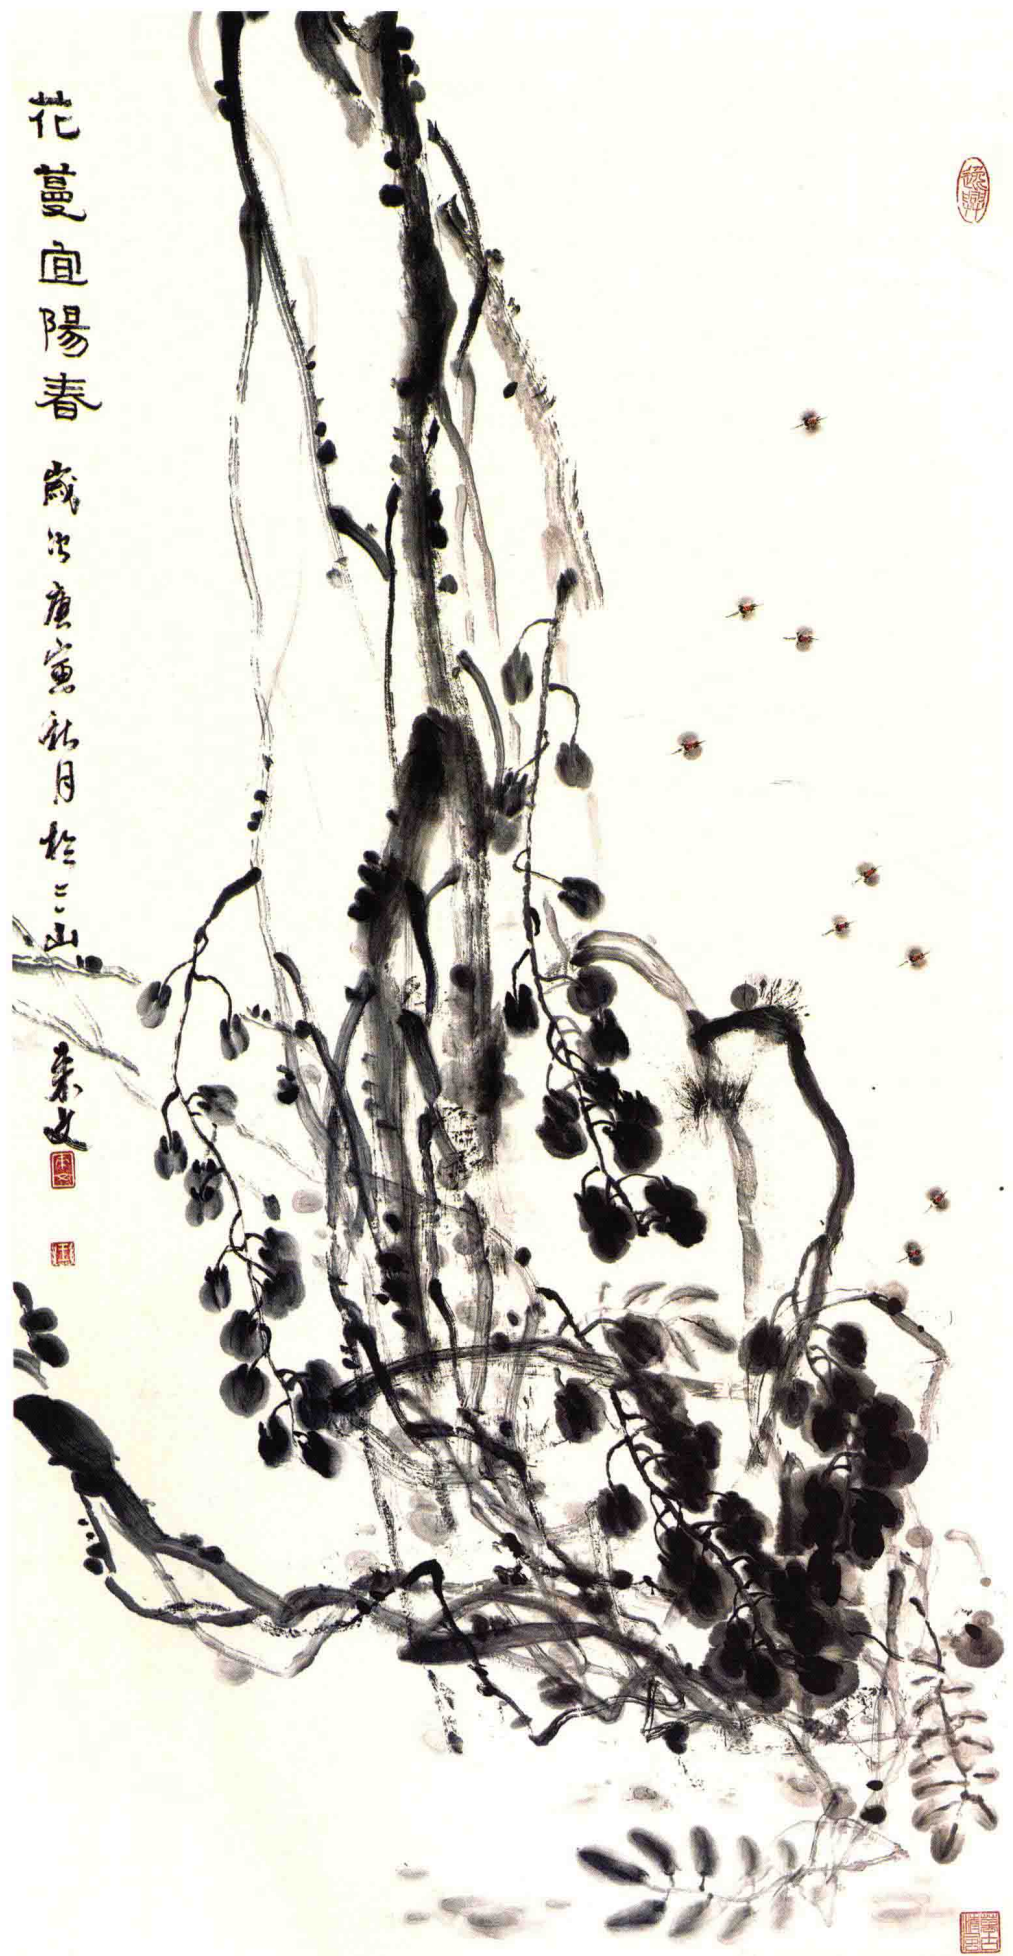 花蔓宜陽春 歲次庚寅秋月於三山
逸興